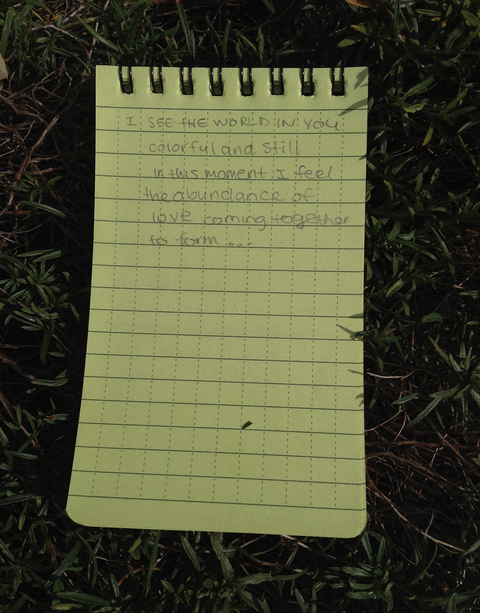 I SEE tHE WORLD IN YOU
colorful and still
in this moment; I feel
the abundance of
love coming together
to form ...